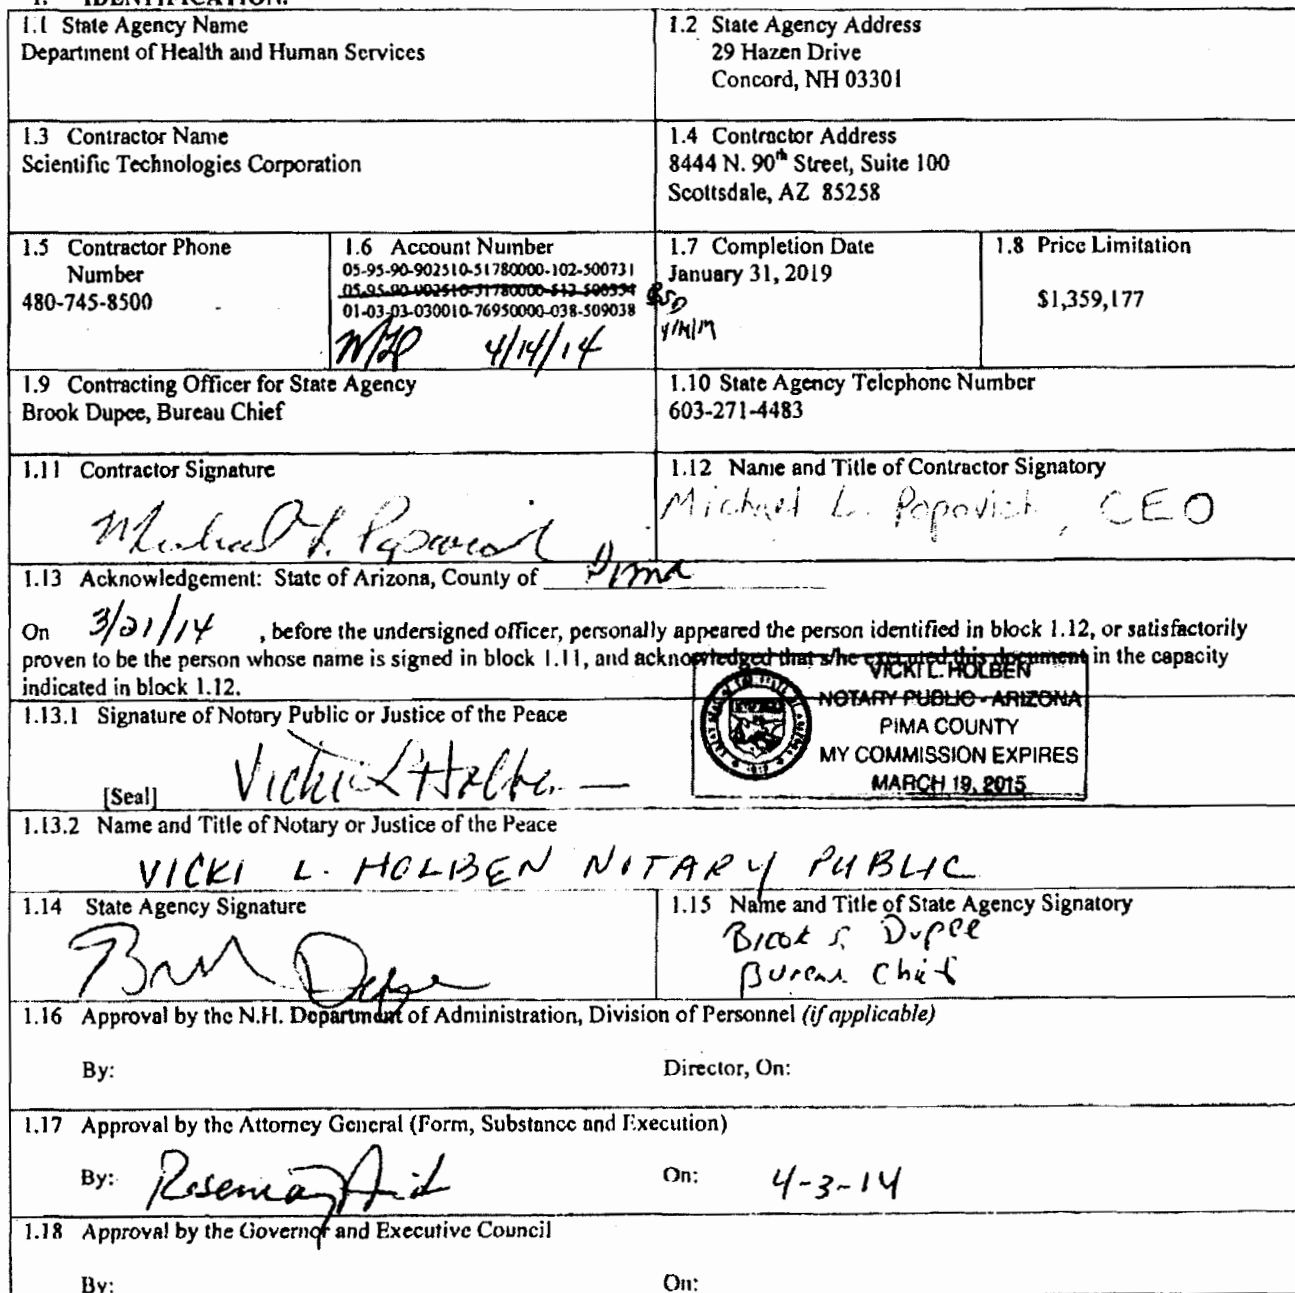 1. IDENTIFICATION.
1.1 State Agency Name
Department of Health and Human Services
1.2 State Agency Address
29 Hazen Drive
Concord, NH 03301
1.3 Contractor Name
Scientific Technologies Corporation
1.4 Contractor Address
8444 N. 90th Street, Suite 100
Scottsdale, AZ 85258
1.5 Contractor Phone
Number
480-745-8500
1.6 Account Number
05-95-90-902510-51780000-102-500731
05-95-90-902510-51780000-512-500354
01-03-03-030010-76950000-038-509038
4/14/14
1.7 Completion Date
January 31, 2019
BSD
1.8 Price Limitation
$1,359,177
1.9 Contracting Officer for State Agency
Brook Dupee, Bureau Chief
1.10 State Agency Telephone Number
603-271-4483
1.11 Contractor Signature
Michael L. Popovich
1.12 Name and Title of Contractor Signatory
Michael L. Popovich, CEO
1.13 Acknowledgement: State of Arizona, County of Pima
On 3/21/14 , before the undersigned officer, personally appeared the person identified in block 1.12, or satisfactorily
proven to be the person whose name is signed in block 1.11, and acknowledged that s/he executed this document in the capacity
indicated in block 1.12.
VICKI L. HOLBEN
NOTARY PUBLIC - ARIZONA
PIMA COUNTY
MY COMMISSION EXPIRES
MARCH 19, 2015
1.13.1 Signature of Notary Public or Justice of the Peace
[Seal] Vicki L Holben
1.13.2 Name and Title of Notary or Justice of the Peace
VICKI L. HOLBEN NOTARY PUBLIC
1.14 State Agency Signature
Brook Dupee
1.15 Name and Title of State Agency Signatory
Brook S. Dupee
Bureau Chief
1.16 Approval by the N.H. Department of Administration, Division of Personnel (if applicable)
By: Director, On:
1.17 Approval by the Attorney General (Form, Substance and Execution)
By: Rosemary On: 4-3-14
1.18 Approval by the Governor and Executive Council
By: On: